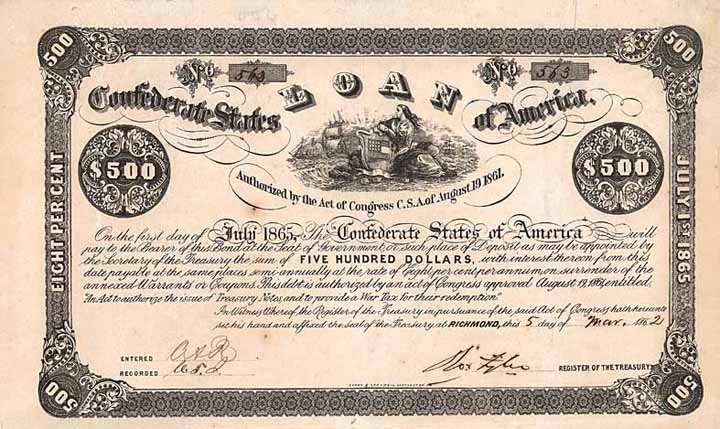 500
500
No 563
No 563
LOAN
Confederate States
of America.
Authorized by the Act of Congress C.S.A. of August 19 1861.
$500
$500
EIGHT PER CENT
JULY 1st 1865
On the first day of July 1865, The Confederate States of America will
pay to the Bearer of this Bond at the Seat of Government or such place of Deposit as may be appointed by
the Secretary of the Treasury the sum of FIVE HUNDRED DOLLARS, with interest thereon from this
date payable at the same places semi-annually at the rate of Eight per cent per annum on surrender of the
annexed Warrants or Coupons. This debt is authorized by an act of Congress approved August 19, 1861, entitled,
"An Act to authorize the issue of Treasury Notes and to provide a War Tax for their redemption."
In Witness Whereof, the Register of the Treasury in pursuance of the said Act of Congress hath hereunto
set his hand and affixed the seal of the Treasury at RICHMOND, this 5 day of Mar. 1862
ENTERED
RECORDED
Rob Tyler
REGISTER OF THE TREASURY
500
500